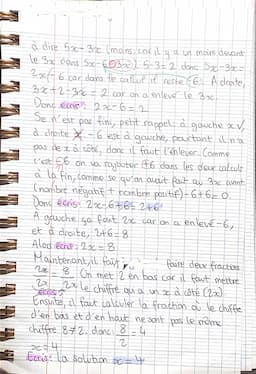 à dire 5x-3x (moins, car il y a un moins devant
le 3x dans 5x-6=3x). 5-3=2 donc 5x-3x=
2x/-6 car dans le calcul il reste -6. A droite,
3x+2-3x = 2 car on a enlevé le 3x.
Donc écris: 2x-6=2
Se n'est pas fini, petit rappel: à gauche x √,
à droite X. -6 est à gauche, pourtant il n'a
pas de x à côté, donc il faut l'enlever. Comme
c'est -6 on va rajouter +6 dans les deux calculs
à la fin, comme se qu'on avait fait au 3x avant
(nombre négatif + nombre positif) -6+6=0.
Donc écris: 2x-6+6=2+6
A gauche ça fait 2x car on a enlevé -6,
et à droite, 2+6=8
Alors écris: 2x=8
Maintenant, il faut faire deux fractions
2x = 8 . On met 2 en bas car il faut mettre
2x 2 le chiffre qui a un x à côté (2x)
Ensuite, il faut calculer la fraction où le chiffre
d'en bas et d'en haut ne sont pas le même
chiffre 8≠2. donc 8 = 4
2
x=4
Ecris: la solution x=4